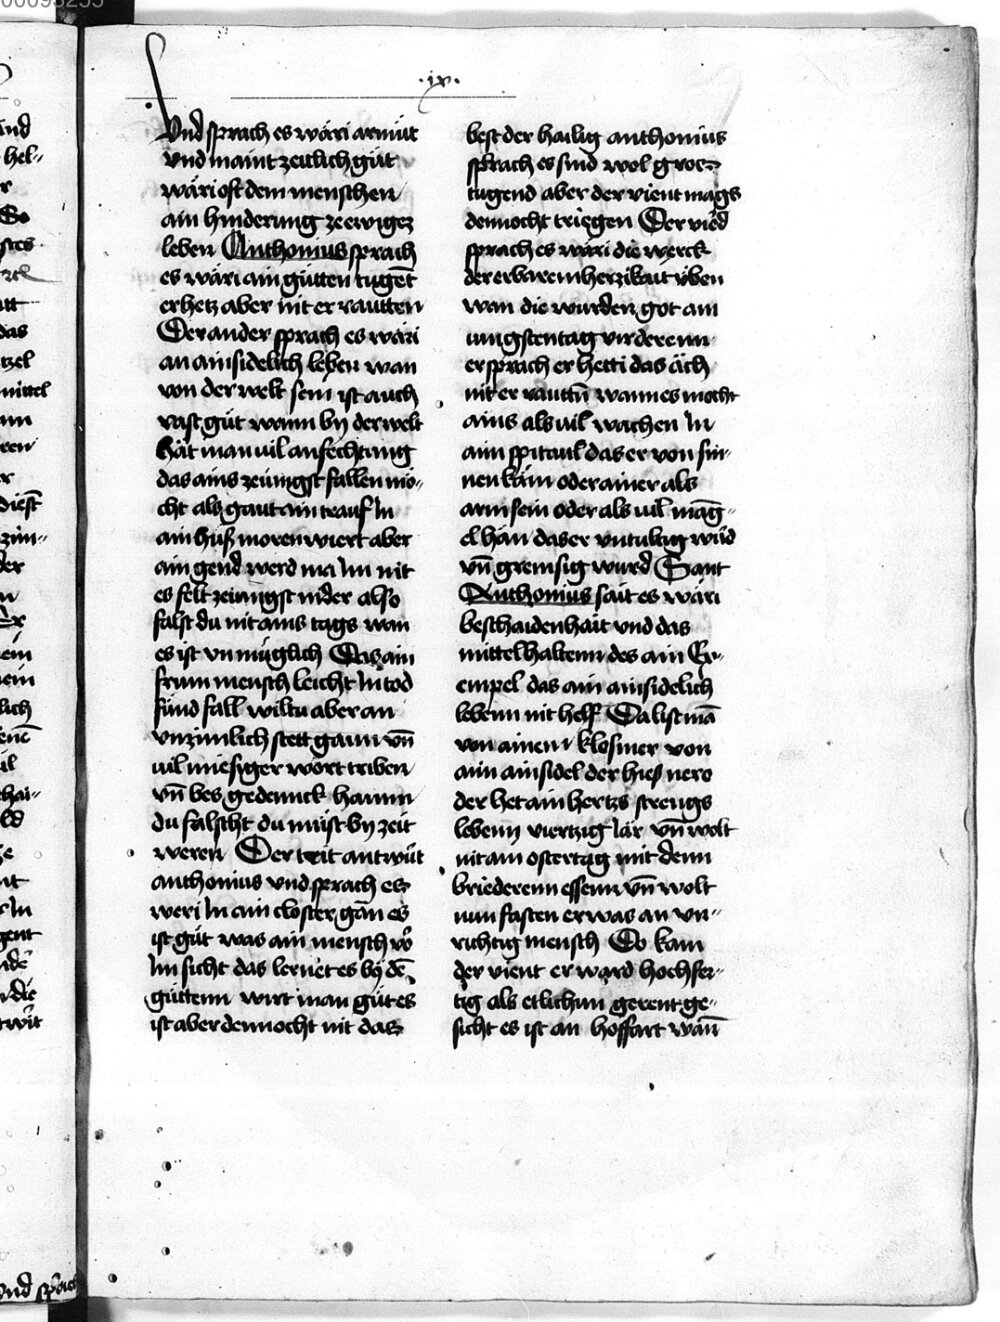 00095255
·ix·
Vnd sprach es wäri armüt
vnd maint zeitlich güt
wäri oft dem menschen
ain hinderung ze ewigez
leben Anthonius sprach
es wäri ain gütten tugēt
er hetz aber nit errautten
Der ander sprach es wäri
an ainsidelich leben wan
von der welt sein ist auch
vast güt wann by der welt
hät man vil anfechtung
das ains zeüngst fallen mö-
cht als gaut ain trauf In
ain huß moren wiert aber
ain gend werd ma Im nit
es felt zeiungst nider also
falst du nit ains tags wan
es ist vnmüglich Das ain
frum mensch leicht In tod
sünd fall wiltu aber an
vnzimlich stett gann vn̄
vil miesiger wort triben
vn̄ bes gedennck hannn
du falscht du must by zeit
weren Der trit antwürt
anthonius vnd sprach es
weri In ain closter gän es
ist güt was ain mensch vō
Im sicht das lernet es bÿ dē
güttenn wirt man güt es
ist aber dennocht nit das
best der hailig anthonius
sprach es sind wol groz
tugend aber der vient mags
dennocht triegen Der vierd
sprach es wäri die werck
der erbaremherzikait üben
wan die wurden got am
iungsten tag virderenn
er sprach er hetti das äch
nit errauttn̄ wann es mocht
ains als vil wachen In
ain spittaul das er von sin-
nen käm oder ainer als
arm sein oder als vil mäg-
el hän das er vntultig würd
vn̄ gremsig wurd Sant
Anthonius sait es wäri
beschaidenhait vnd das
mittel haltenn des ain Ex-
empel das ain ainsidelich
lebenn nit helf Da list mā
von ainem klosmer von
ain ainsidel der hies nero
der het ain hertzs strengs
lebenn viertzig Iär vn̄ wolt
nit am ostertag mit denn
briederenn essenn vn̄ wolt
nun fasten er was an vn-
richtig mensch Do kam
der vient er ward hochfer-
tig als etlichnn gerent ge-
sicht es ist an hoffart wān